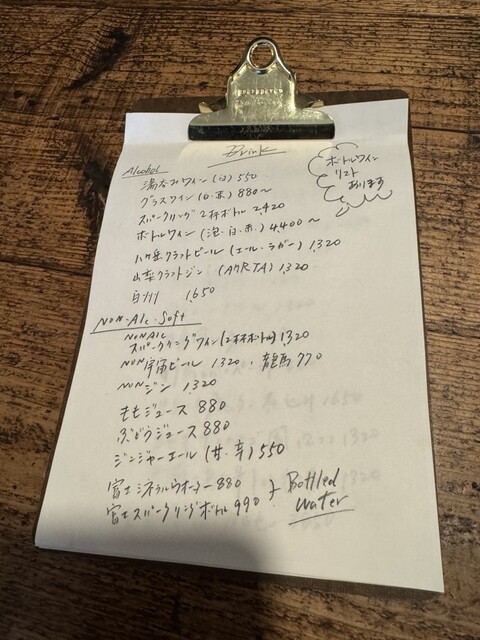 Drink
Alcohol
湯のみワイン(白)550
グラスワイン(白・赤)880〜
スパークリング2杯ボトル2,420
ボトルワイン(泡・白・赤)4,400〜
八ヶ岳クラフトビール(エール・ラガー)1,320
山梨クラフトジン(AKRTA)1,320
白州 1,650
ボトルワイン
リスト
あります
NON・Alc・Soft
NON Alc
スパークリングワイン(2杯ボトル)1,320
NON宇宙ビール 1320・龍馬770
NONジン 1,320
ももジュース 880
ぶどうジュース 880
ジンジャーエール(甘・辛)550
富士ミネラルウォーター880
富士スパークリングボトル990
Bottled
water